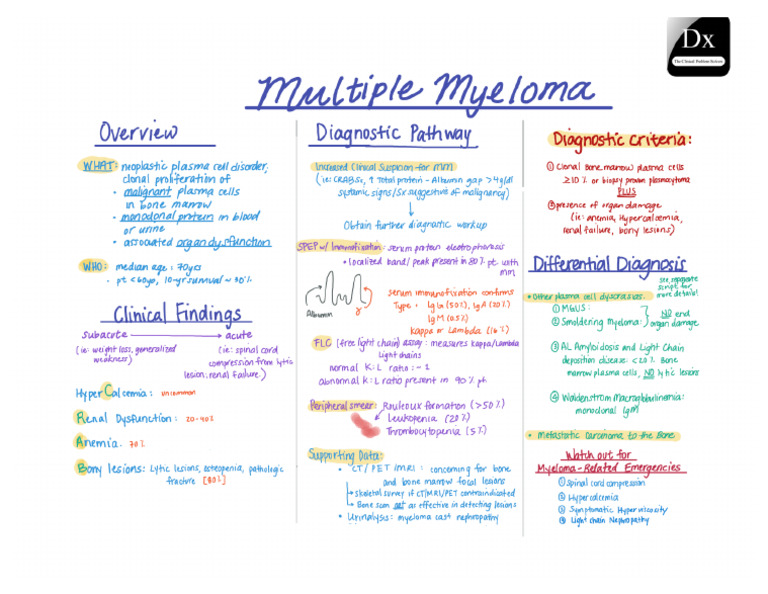 Dx
The Clinical Problem Solvers
Multiple Myeloma
Overview
WHAT: neoplastic plasma cell disorder,
clonal proliferation of
• malignant plasma cells
in bone marrow
• monoclonal protein in blood
or urine
• associated organ dysfunction
WHO: median age: 70yrs
• pt < 60yo, 10-yr survival ~ 30%
Clinical Findings
subacute → acute
(ie: weight loss, generalized
weakness)
(ie: spinal cord
compression from lytic
lesion, renal failure)
HyperCalcemia: uncommon
Renal Dysfunction: 20-40%
Anemia: 70%
Bony lesions: Lytic lesions, osteopenia, pathologic
fracture [80%]
Diagnostic Pathway
Increased Clinical Suspicion for MM
(ie: CRAB Sx, ↑ Total protein - Albumin gap > 4g/dl
systemic signs/Sx suggestive of malignancy)
↓
Obtain further diagnostic workup
SPEP w/ Immunofixation: serum protein electrophoresis
• localized band/peak present in 80% pt with
mm
Albumin
γ
serum immunofixation confirms
Type • IgG (50%), IgA (20%)
IgM (0.5%)
Kappa or Lambda (16%)
FLC (free light chain) assay: measures kappa/Lambda
Light chains
normal K:L ratio: ~1
abnormal K:L ratio present in 90% pt
Peripheral smear: Rouleaux formation (>50%)
Leukopenia (20%)
Thrombocytopenia (5%)
Supporting Data:
• CT/PET/MRI: concerning for bone
and bone marrow focal lesions
↳ Skeletal survey if CT/MRI/PET contraindicated
↳ Bone scan not as effective in detecting lesions
• Urinalysis: myeloma cast nephropathy
Diagnostic Criteria:
① Clonal Bone marrow plasma cells
≥10% or biopsy proven plasmacytoma
PLUS
② presence of organ damage
(ie: anemia, hypercalcemia,
renal failure, bony lesions)
Differential Diagnosis
see separate
script for
more details!
• Other plasma cell dyscrasias:
① MGUS:
② Smoldering Myeloma:
NO end
organ damage
③ AL Amyloidosis and Light Chain
deposition disease: < 20% Bone
marrow plasma cells, NO lytic lesions
④ Waldenstrom Macroglobulinemia:
monoclonal IgM
• Metastatic Carcinoma to the Bone
Watch out for
Myeloma-Related Emergencies
① Spinal cord compression
② Hypercalcemia
③ Symptomatic Hyperviscosity
④ Light chain Nephropathy